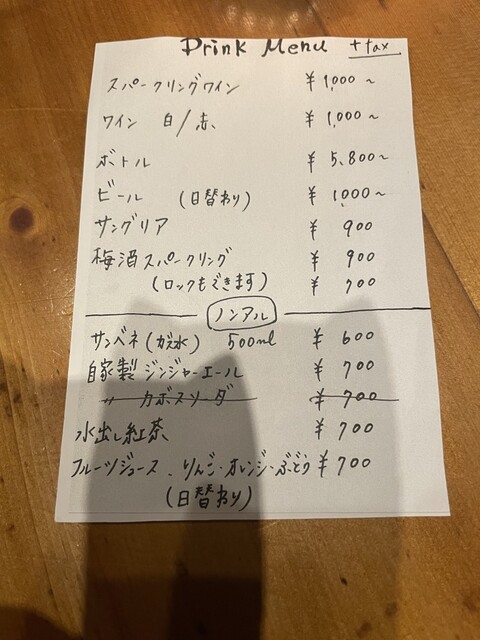 Drink Menu +tax
スパークリングワイン ¥1,000~
ワイン 白/赤 ¥1,000~
ボトル ¥5,800~
ビール (日替わり) ¥1,000~
サングリア ¥900
梅酒スパークリング ¥900
(ロックもできます) ¥700
ノンアル
サンベネ(ガス水) 500ml ¥600
自家製ジンジャーエール ¥700
〃 カボスソーダ ¥700
水出し紅茶 ¥700
フルーツジュース、りんご・オレンジ・ぶどう ¥700
(日替わり)